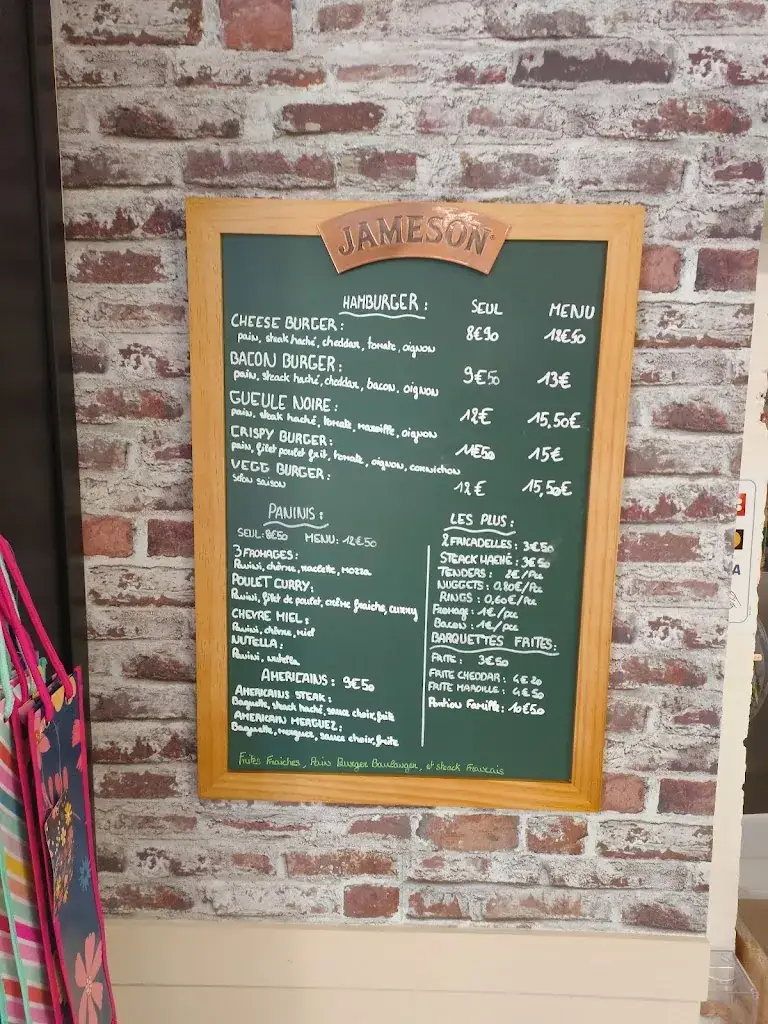 JAMESON
HAMBURGER : SEUL MENU
CHEESE BURGER : 8€90 12€50
pain, steak haché, cheddar, tomate, oignon
BACON BURGER : 9€50 13€
pain, steack haché, cheddar, bacon, oignon
GUEULE NOIRE : 12€ 15,50€
pain, steak haché, tomate, maroille, oignon
CRISPY BURGER : 11€50 15€
pain, filet poulet frit, tomate, oignon, cornichon
VEGG BURGER : 12€ 15,50€
selon saison
PANINIS :
SEUL: 8€50 MENU: 12€50
3 FROMAGES :
Panini, chèvre, raclette, mozza
POULET CURRY :
Panini, filet de poulet, crème fraiche, curry
CHEVRE MIEL :
Panini, chèvre, miel
NUTELLA :
Panini, nutella
AMERICAINS : 9€50
AMERICAINS STEAK :
Baguette, steak haché, sauce choix, frite
AMERICAIN MERGUEZ :
Baguette, merguez, sauce choix, frite
LES PLUS :
2 FRICADELLES : 3€50
STEACK HACHÉ : 3€50
TENDERS : 2€/Pce
NUGGETS : 0,80€/Pce
RINGS : 0,60€/Pce
Fromage : 1€/Pce
Bacon : 1€/Pce
BARQUETTES FRITES :
FRITE : 3€50
FRITE CHEDDAR : 4€20
FRITE MAROILLE : 4€50
Portion Famille : 10€50
Frites Fraiches, Pain Burger Boulanger, et steack Français